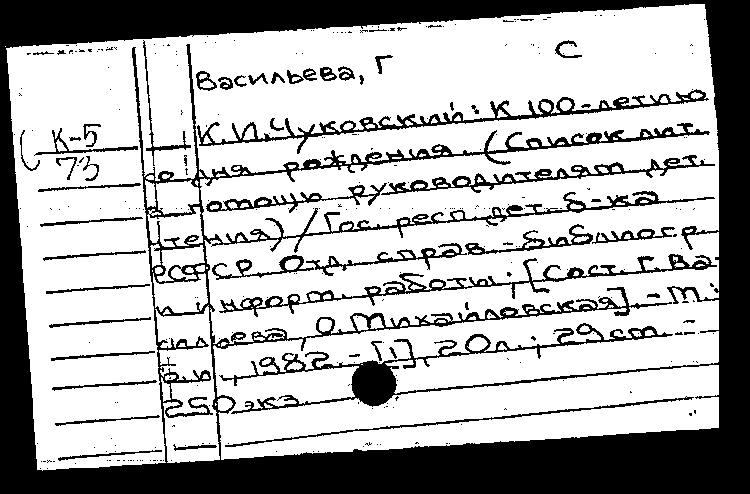 С
Васильева, Г
К-5
73
К.И. Чуковский: К 100-летию
со дня рождения. (Список лит.
в помощь руководителям дет.
чтения) / Гос. респ. дет. б-ка
РСФСР. Отд. справ.-библиогр.
и информ. работы; [Сост. Г. Ва-
сильева, О. Михайловская]. - М.:
Б.и., 1982. - [1], 20 л.; 29 см. -
250 экз.